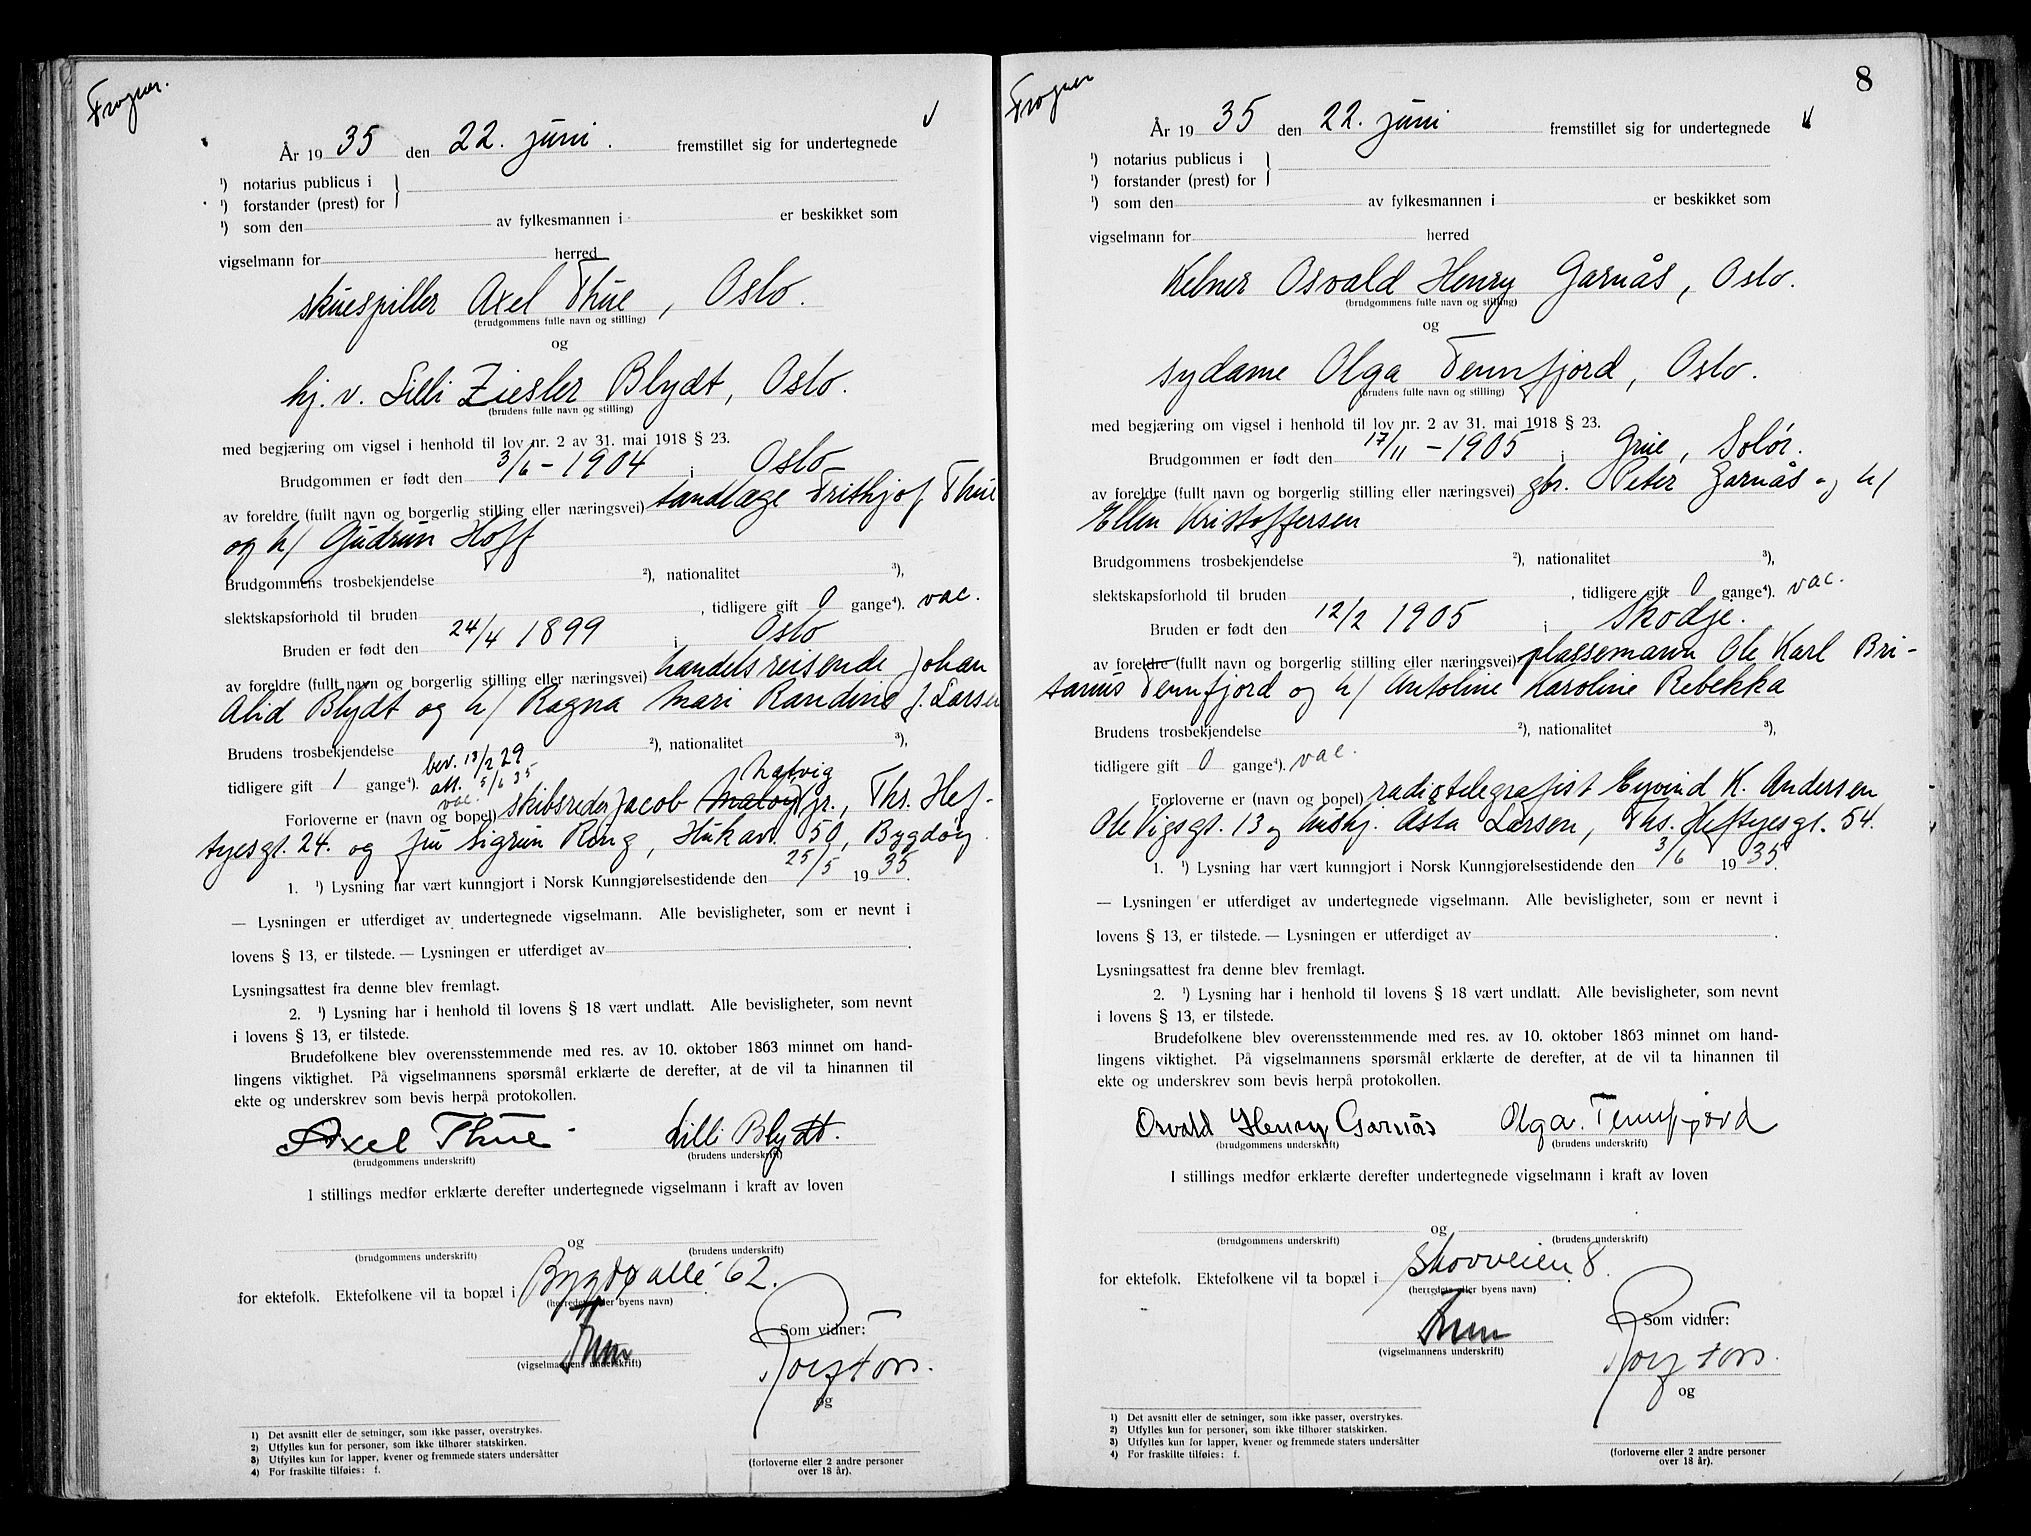 Frogner.
År 19 35 den 22. juni. fremstillet sig for undertegnede
¹) notarius publicus i
¹) forstander (prest) for
¹) som den av fylkesmannen i er beskikket som
vigselmann for herred
skuespiller Axel Thue, Oslo.
(brudgommens fulle navn og stilling)
og
hj. v. Lilli Ziesler Blydt, Oslo.
(brudens fulle navn og stilling)
med begjæring om vigsel i henhold til lov nr. 2 av 31. mai 1918 § 23.
Brudgommen er født den 3/6 - 1904 i Oslo
av foreldre (fullt navn og borgerlig stilling eller næringsvei) tandlæge Frithjof Thue
og h/ Gudrun Hoff
Brudgommens trosbekjendelse ²), nationalitet ³),
slektskapsforhold til bruden , tidligere gift 0 gange⁴). vac.
Bruden er født den 24/4 1899 i Oslo
av foreldre (fullt navn og borgerlig stilling eller næringsvei) handelsreisende Johan
Alid Blydt og h/ Ragna Mari Randine f. Larsen
Brudens trosbekjendelse ²), nationalitet ³),
tidligere gift 1 gange⁴). bev. 13/2 29
att. 5/6 35
vac.
Hatvig
Forloverne er (navn og bopel) skibsreder Jacob jr., Ths. Hef-
tyesgt. 24. og fru Sigrun Ring, Hukav. 50, Bygdøy.
1. ¹) Lysning har vært kunngjort i Norsk Kunngjørelsestidende den 25/5 19 35.
— Lysningen er utferdiget av undertegnede vigselmann. Alle bevisligheter, som er nevnt i
lovens § 13, er tilstede. — Lysningen er utferdiget av .
Lysningsattest fra denne blev fremlagt.
2. ¹) Lysning har i henhold til lovens § 18 vært undlatt. Alle bevisligheter, som nevnt
i lovens § 13, er tilstede.
Brudefolkene blev overensstemmende med res. av 10. oktober 1863 minnet om hand-
lingens viktighet. På vigselmannens spørsmål erklærte de derefter, at de vil ta hinannen til
ekte og underskrev som bevis herpå protokollen.
Axel Thue. Lilli Blydt.
(brudgommens underskrift) (brudens underskrift)
I stillings medfør erklærte derefter undertegnede vigselmann i kraft av loven
og
(brudgommens underskrift) (brudens underskrift)
for ektefolk. Ektefolkene vil ta bopæl i Bygdø allé 62.
(herredets eller byens navn)
Som vidner:
(vigselmannens underskrift)
og
1) Det avsnitt eller de setninger, som ikke passer, overstrykes.
2) Utfylles kun for personer, som ikke tilhører statskirken.
3) Utfylles kun for lapper, kvener og fremmede staters undersåtter
4) For fraskilte tilføies: f.
(forloverne eller 2 andre personer
over 18 år).
Frogner
8
År 19 35 den 22. juni fremstillet sig for undertegnede
¹) notarius publicus i
¹) forstander (prest) for
¹) som den av fylkesmannen i er beskikket som
vigselmann for herred
Kelner Osvald Henry Garnås, Oslo.
(brudgommens fulle navn og stilling)
og
sydame Olga Tennfjord, Oslo.
(brudens fulle navn og stilling)
med begjæring om vigsel i henhold til lov nr. 2 av 31. mai 1918 § 23.
Brudgommen er født den 17/11 - 1905 i Grue, Solør.
av foreldre (fullt navn og borgerlig stilling eller næringsvei) gbr. Peter Garnås og h/
Ellen Kristoffersen
Brudgommens trosbekjendelse ²), nationalitet ³),
slektskapsforhold til bruden , tidligere gift 0 gange⁴). vac.
Bruden er født den 12/2 1905 i Skodje.
av foreldre (fullt navn og borgerlig stilling eller næringsvei) plassemann Ole Karl Bri-
tarius Tennfjord og h/ Antoline Karoline Rebekka
Brudens trosbekjendelse ²), nationalitet ³),
tidligere gift 0 gange⁴). vac.
Forloverne er (navn og bopel) radiotelegrafist Eyvind K. Andersen
Ole Vigsgt. 13 og hushj. Asta Larsen, Ths. Heftyesgt. 54.
1. ¹) Lysning har vært kunngjort i Norsk Kunngjørelsestidende den 3/6 19 35.
— Lysningen er utferdiget av undertegnede vigselmann. Alle bevisligheter, som er nevnt i
lovens § 13, er tilstede. — Lysningen er utferdiget av .
Lysningsattest fra denne blev fremlagt.
2. ¹) Lysning har i henhold til lovens § 18 vært undlatt. Alle bevisligheter, som nevnt
i lovens § 13, er tilstede.
Brudefolkene blev overensstemmende med res. av 10. oktober 1863 minnet om hand-
lingens viktighet. På vigselmannens spørsmål erklærte de derefter, at de vil ta hinannen til
ekte og underskrev som bevis herpå protokollen.
Osvald Henry Garnås Olga. Tennfjord
(brudgommens underskrift) (brudens underskrift)
I stillings medfør erklærte derefter undertegnede vigselmann i kraft av loven
og
(brudgommens underskrift) (brudens underskrift)
for ektefolk. Ektefolkene vil ta bopæl i Skovveien 8.
(herredets eller byens navn)
Som vidner:
(vigselmannens underskrift)
og
1) Det avsnitt eller de setninger, som ikke passer, overstrykes.
2) Utfylles kun for personer, som ikke tilhører statskirken.
3) Utfylles kun for lapper, kvener og fremmede staters undersåtter
4) For fraskilte tilføies: f.
(forloverne eller 2 andre personer
over 18 år).